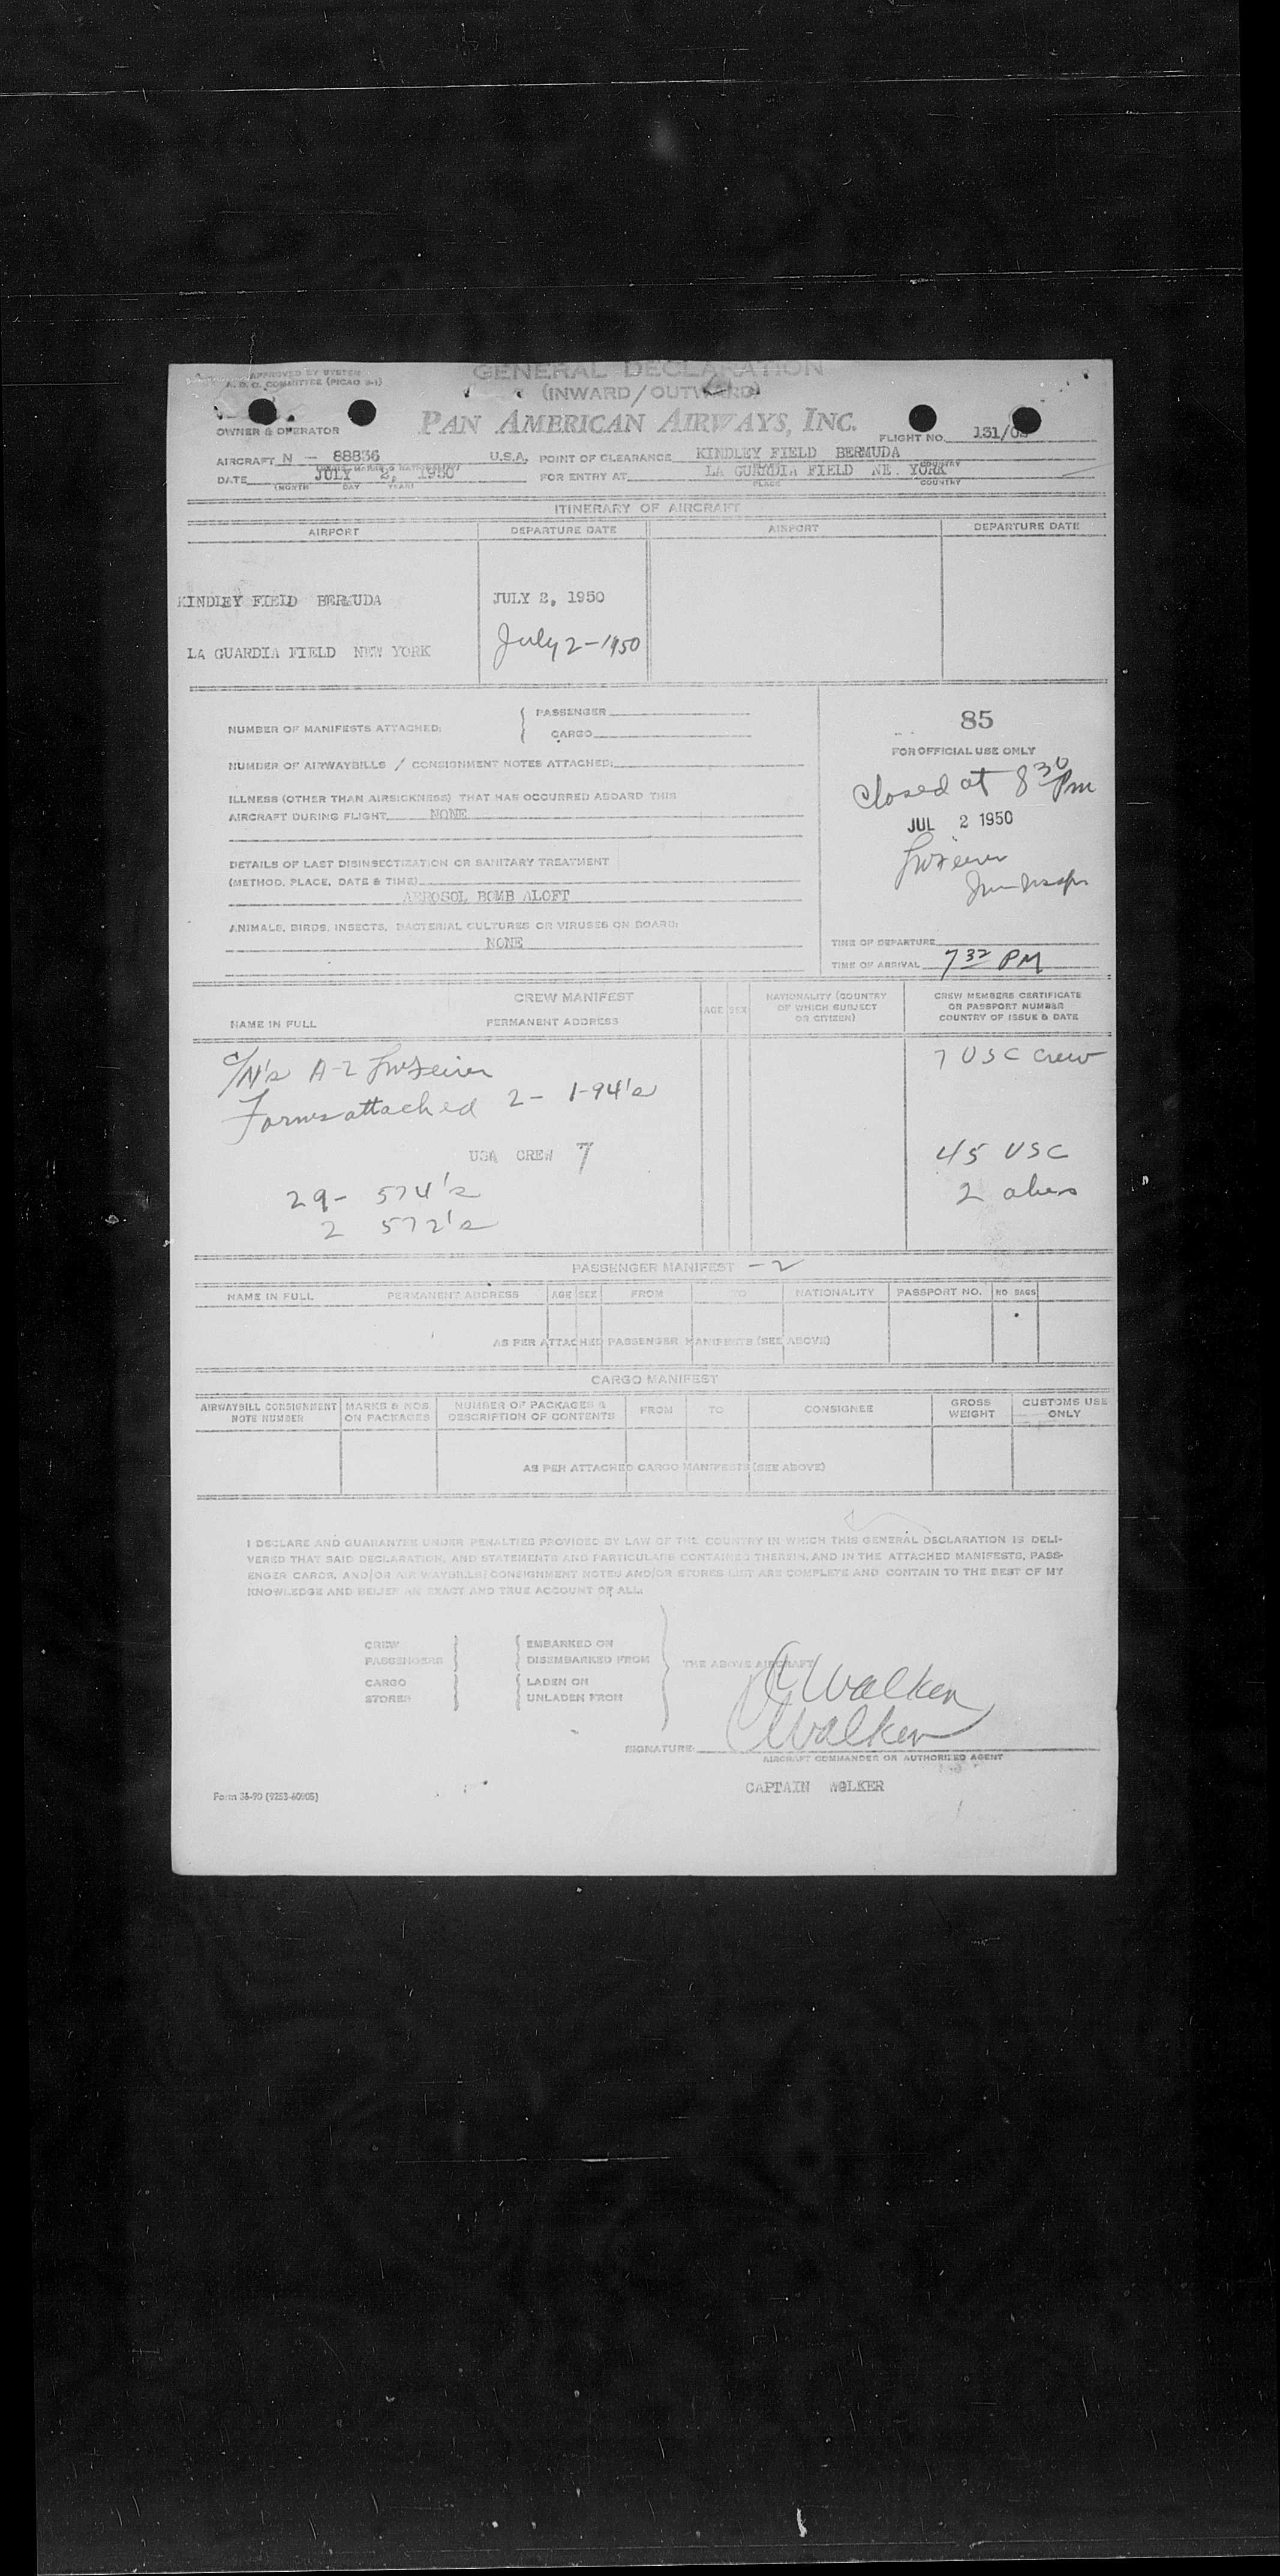 APPROVED BY SYSTEM
A. D. C. COMMITTEE (PICAO 2-1)
GENERAL DECLARATION
(INWARD/OUTWARD)
PAN AMERICAN AIRWAYS, INC.
OWNER & OPERATOR
FLIGHT NO. 131/02
AIRCRAFT N - 88836 U.S.A. POINT OF CLEARANCE KINDLEY FIELD BERMUDA
DATE JULY 2, 1950 FOR ENTRY AT LA GUARDIA FIELD NE. YORK
(MONTH DAY YEAR) PLACE COUNTRY
ITINERARY OF AIRCRAFT
AIRPORT DEPARTURE DATE AIRPORT DEPARTURE DATE
KINDLEY FIELD BERMUDA JULY 2, 1950
LA GUARDIA FIELD NEW YORK July 2-1950
NUMBER OF MANIFESTS ATTACHED: PASSENGER
CARGO
NUMBER OF AIRWAYBILLS / CONSIGNMENT NOTES ATTACHED:
ILLNESS (OTHER THAN AIRSICKNESS) THAT HAS OCCURRED ABOARD THIS
AIRCRAFT DURING FLIGHT NONE
DETAILS OF LAST DISINSECTIZATION OR SANITARY TREATMENT
(METHOD, PLACE, DATE & TIME)
AEROSOL BOMB ALOFT
ANIMALS, BIRDS, INSECTS, BACTERIAL CULTURES OR VIRUSES ON BOARD:
NONE
85
FOR OFFICIAL USE ONLY
Closed at 8 30 Pm
JUL 2 1950
TIME OF DEPARTURE
TIME OF ARRIVAL 7 32 PM
CREW MANIFEST
NAME IN FULL PERMANENT ADDRESS AGE SEX NATIONALITY (COUNTRY OF WHICH SUBJECT OR CITIZEN) CREW MEMBERS CERTIFICATE OR PASSPORT NUMBER COUNTRY OF ISSUE & DATE
C/N's A-2
7 USC Crew
Forms attached 2- 1-94's
USA CREW 7
45 USC
29- 574's
2 aliens
2 572's
PASSENGER MANIFEST -2
NAME IN FULL PERMANENT ADDRESS AGE SEX FROM TO NATIONALITY PASSPORT NO. NO BAGS
AS PER ATTACHED PASSENGER MANIFESTS (SEE ABOVE)
CARGO MANIFEST
AIRWAYBILL CONSIGNMENT NOTE NUMBER MARKS & NOS ON PACKAGES NUMBER OF PACKAGES & DESCRIPTION OF CONTENTS FROM TO CONSIGNEE GROSS WEIGHT CUSTOMS USE ONLY
AS PER ATTACHED CARGO MANIFESTS (SEE ABOVE)
I DECLARE AND GUARANTEE UNDER PENALTIES PROVIDED BY LAW OF THE COUNTRY IN WHICH THIS GENERAL DECLARATION IS DELI-
VERED THAT SAID DECLARATION, AND STATEMENTS AND PARTICULARS CONTAINED THEREIN, AND IN THE ATTACHED MANIFESTS, PASS-
ENGER CARDS, AND/OR AIR WAYBILLS/ CONSIGNMENT NOTES AND/OR STORES LIST ARE COMPLETE AND CONTAIN TO THE BEST OF MY
KNOWLEDGE AND BELIEF AN EXACT AND TRUE ACCOUNT OF ALL:
CREW EMBARKED ON
PASSENGERS DISEMBARKED FROM THE ABOVE AIRCRAFT
CARGO LADEN ON
STORES UNLADEN FROM
Walker
Walker
SIGNATURE:
AIRCRAFT COMMANDER OR AUTHORIZED AGENT
CAPTAIN WOLKER
Form 36-90 (9253-60005)